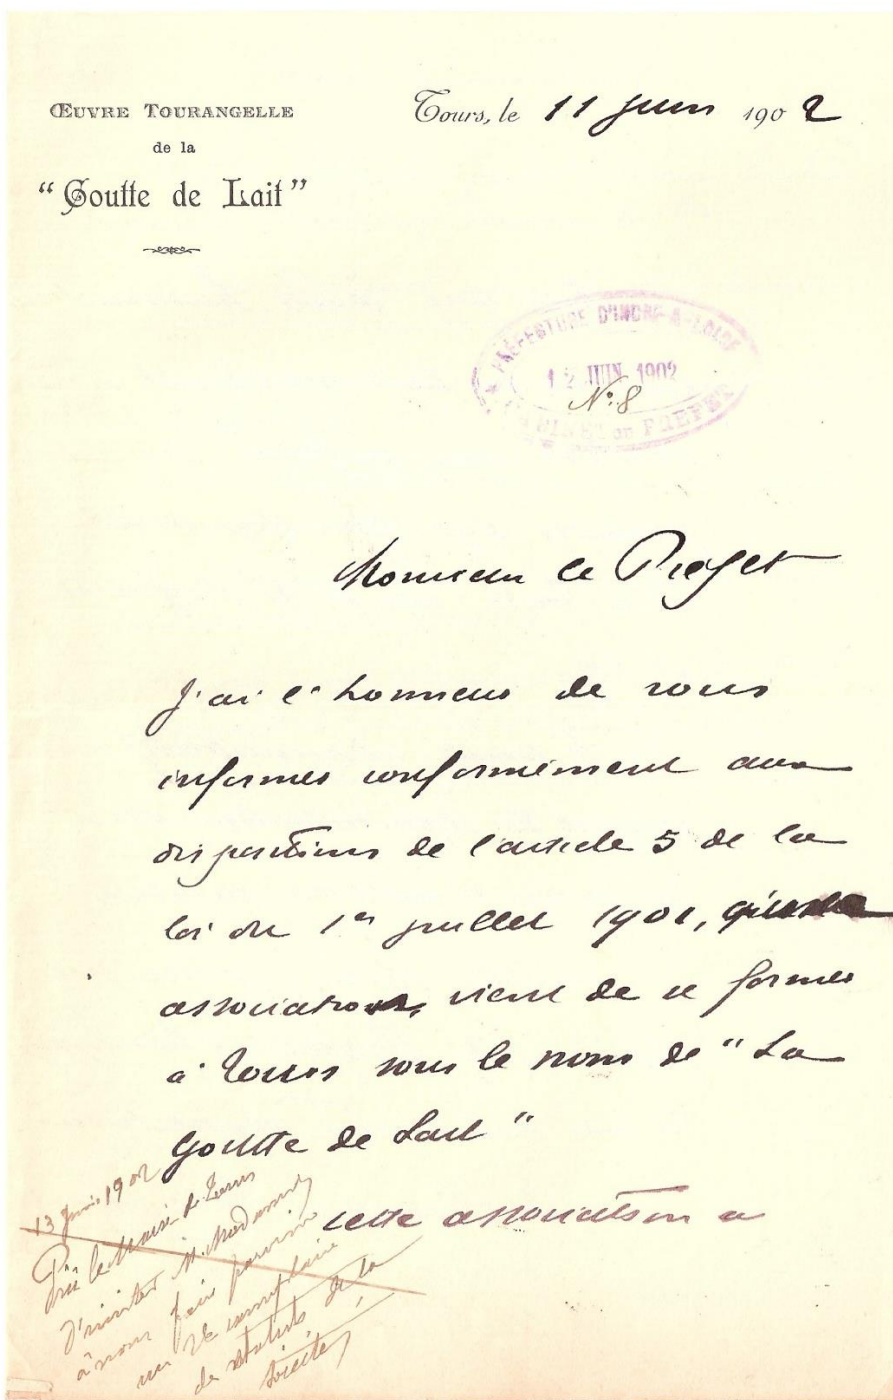 ŒUVRE TOURANGELLE
de la
“Goutte de Lait”
Tours, le 11 juin 1902
PRÉFECTURE D'INDRE-&-LOIRE
12 JUIN 1902
No. 8
CABINET DU PREFET
Monsieur le Prefet
J'ai l'honneur de vous
informer conformément aux
dispositions de l'article 5 de la
loi du 1er juillet 1901, qu'une
association vient de se former
à Tours sous le nom de "La
Goutte de Lait"
cette association a
13 juin 1902
Prié le Maire de Tours
d'inviter M.
à nous faire parvenir
un 2e exemplaire
de statuts de la
société